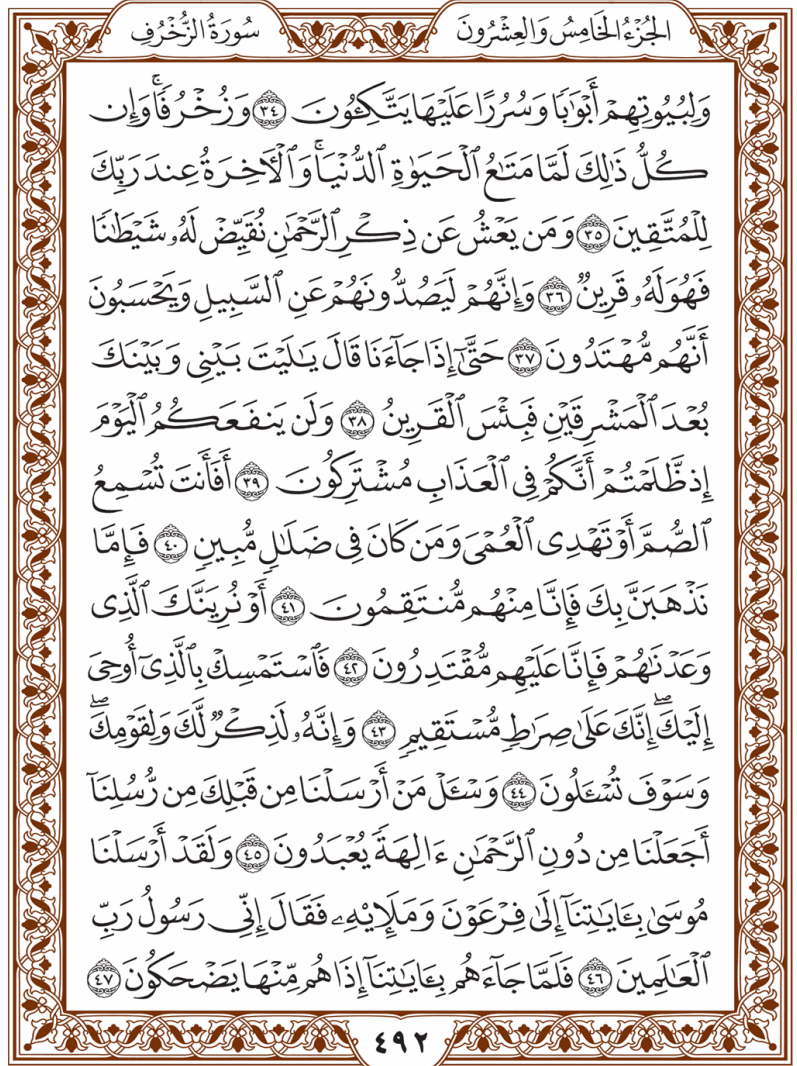 الجُزْءُ الخَامِسُ وَالعِشْرُونَ
سُورَةُ الزُّخْرُفِ
وَلِبُيُوتِهِمْ أَبْوَٰبًا وَسُرُرًا عَلَيْهَا يَتَّكِـُٔونَ ٣٤ وَزُخْرُفًاۚ وَإِن
كُلُّ ذَٰلِكَ لَمَّا مَتَٰعُ ٱلْحَيَوٰةِ ٱلدُّنْيَاۚ وَٱلْأٓخِرَةُ عِندَ رَبِّكَ
لِلْمُتَّقِينَ ٣٥ وَمَن يَعْشُ عَن ذِكْرِ ٱلرَّحْمَٰنِ نُقَيِّضْ لَهُۥ شَيْطَٰنًا
فَهُوَ لَهُۥ قَرِينٌ ٣٦ وَإِنَّهُمْ لَيَصُدُّونَهُمْ عَنِ ٱلسَّبِيلِ وَيَحْسَبُونَ
أَنَّهُم مُّهْتَدُونَ ٣٧ حَتَّىٰٓ إِذَا جَآءَنَا قَالَ يَٰلَيْتَ بَيْنِى وَبَيْنَكَ
بُعْدَ ٱلْمَشْرِقَيْنِ فَبِئْسَ ٱلْقَرِينُ ٣٨ وَلَن يَنفَعَكُمُ ٱلْيَوْمَ
إِذ ظَّلَمْتُمْ أَنَّكُمْ فِى ٱلْعَذَابِ مُشْتَرِكُونَ ٣٩ أَفَأَنتَ تُسْمِعُ
ٱلصُّمَّ أَوْ تَهْدِى ٱلْعُمْىَ وَمَن كَانَ فِى ضَلَٰلٍ مُّبِينٍ ٤٠ فَإِمَّا
نَذْهَبَنَّ بِكَ فَإِنَّا مِنْهُم مُّنتَقِمُونَ ٤١ أَوْ نُرِيَنَّكَ ٱلَّذِى
وَعَدْنَٰهُمْ فَإِنَّا عَلَيْهِم مُّقْتَدِرُونَ ٤٢ فَٱسْتَمْسِكْ بِٱلَّذِىٓ أُوحِىَ
إِلَيْكَۖ إِنَّكَ عَلَىٰ صِرَٰطٍ مُّسْتَقِيمٍ ٤٣ وَإِنَّهُۥ لَذِكْرٌ لَّكَ وَلِقَوْمِكَۖ
وَسَوْفَ تُسْـَٔلُونَ ٤٤ وَسْـَٔلْ مَنْ أَرْسَلْنَا مِن قَبْلِكَ مِن رُّسُلِنَآ
أَجَعَلْنَا مِن دُونِ ٱلرَّحْمَٰنِ ءَالِهَةً يُعْبَدُونَ ٤٥ وَلَقَدْ أَرْسَلْنَا
مُوسَىٰ بِـَٔايَٰتِنَآ إِلَىٰ فِرْعَوْنَ وَمَلَإِي۟هِۦ فَقَالَ إِنِّى رَسُولُ رَبِّ
ٱلْعَٰلَمِينَ ٤٦ فَلَمَّا جَآءَهُم بِـَٔايَٰتِنَآ إِذَا هُم مِّنْهَا يَضْحَكُونَ ٤٧
٤٩٢